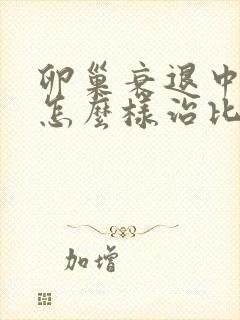 卵巢衰退中
怎麼樣治比
加增